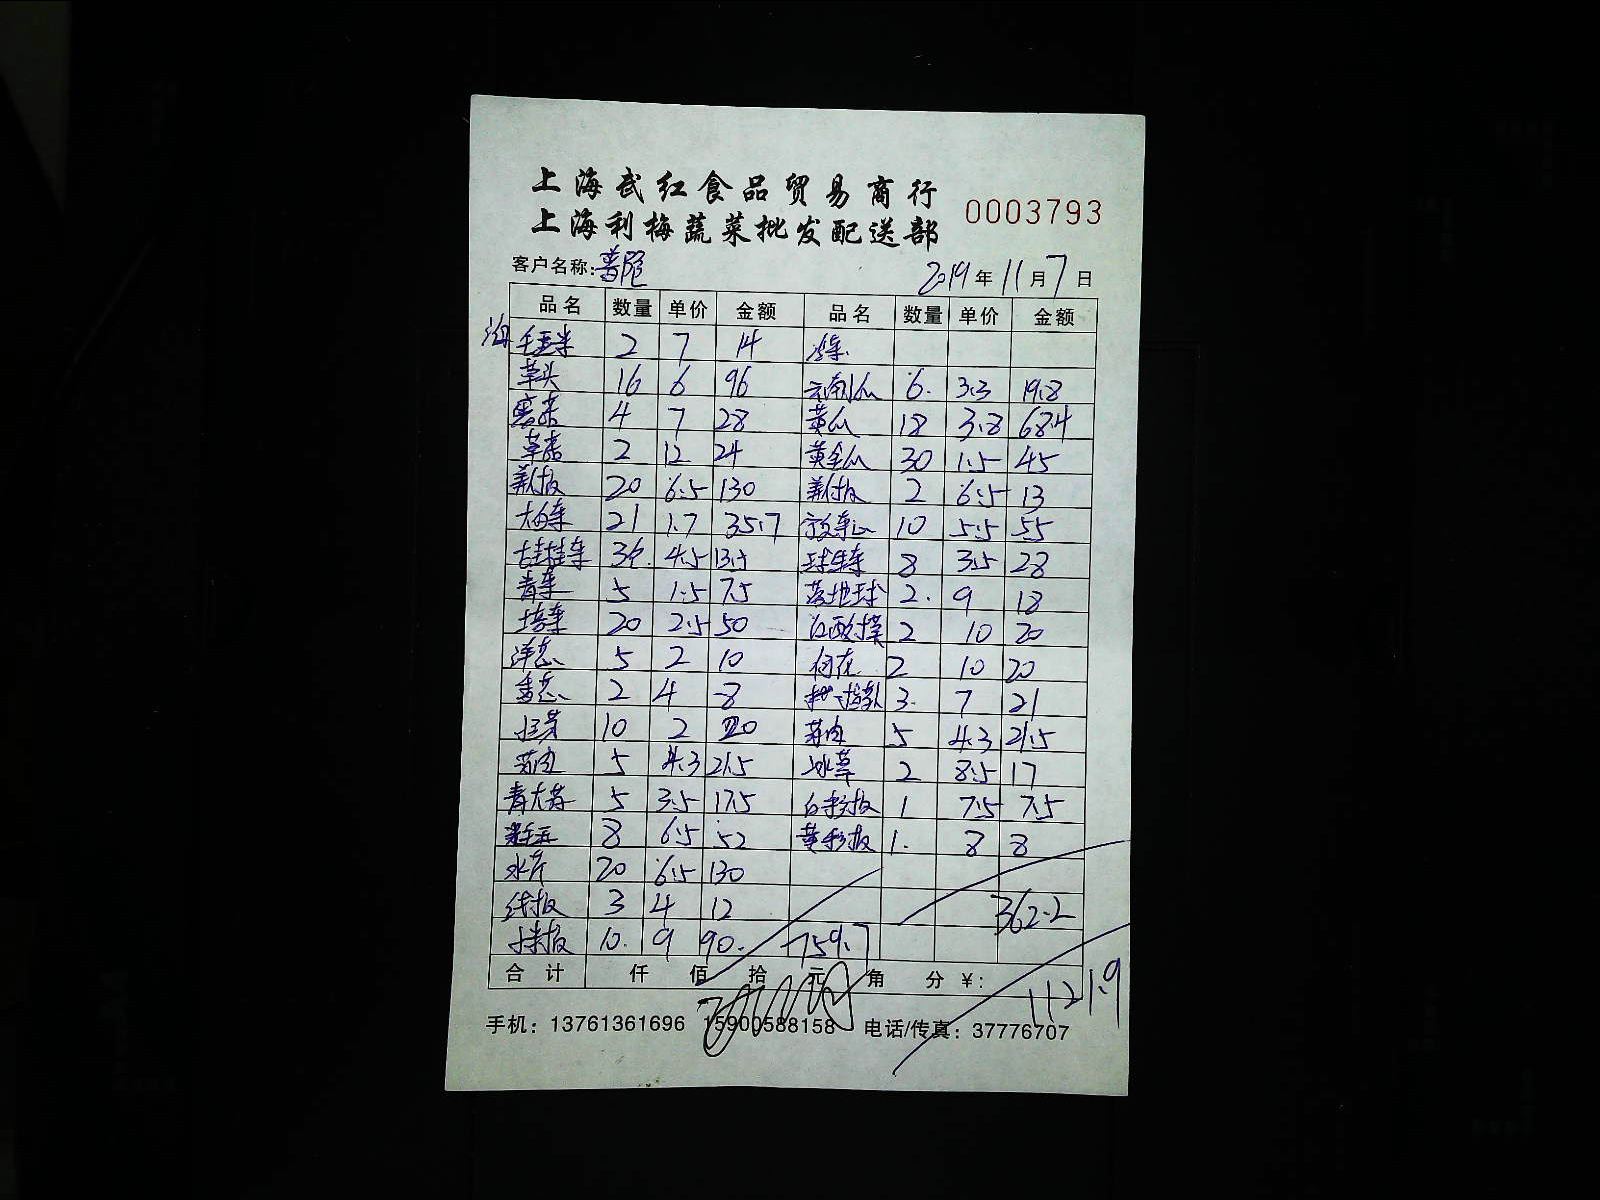 上海武红食品贸易商行
上海利梅蔬菜批发配送部 0003793
客户名称:普陀 2019年11月7日
品名 数量 单价 金额 品名 数量 单价 金额
毛豆米 2 7 14
草头 16 6 96 6. 3.3 19.8
4 7 28 黄瓜 18 3.8 68.4
草菇 2 12 24 黄金瓜 30 1.5 45
20 6.5 130 2 6.5 13
大白菜 21 1.7 35.7 10 5.5 55
3 4.5 13.5 球生菜 8 3.5 28
青菜 5 1.5 7.5 落地球 2. 9 18
20 2.5 50 2 10 20
洋葱 5 2 10 2 10 20
香葱 2 4 8 3. 7 21
10 2 20 茄肉 5 4.3 21.5
茄肉 5 4.3 21.5 冰草 2 8.5 17
青大茄 5 3.5 17.5 白彩椒 1 7.5 7.5
8 6.5 52 黄彩椒 1. 8 8
水芹 20 6.5 130
线椒 3 4 12 362.2
10. 9 90. 759.7
合计 仟 佰 拾 元 角 分 ¥: 1121.9
手机: 13761361696 15900588158 电话/传真: 37776707